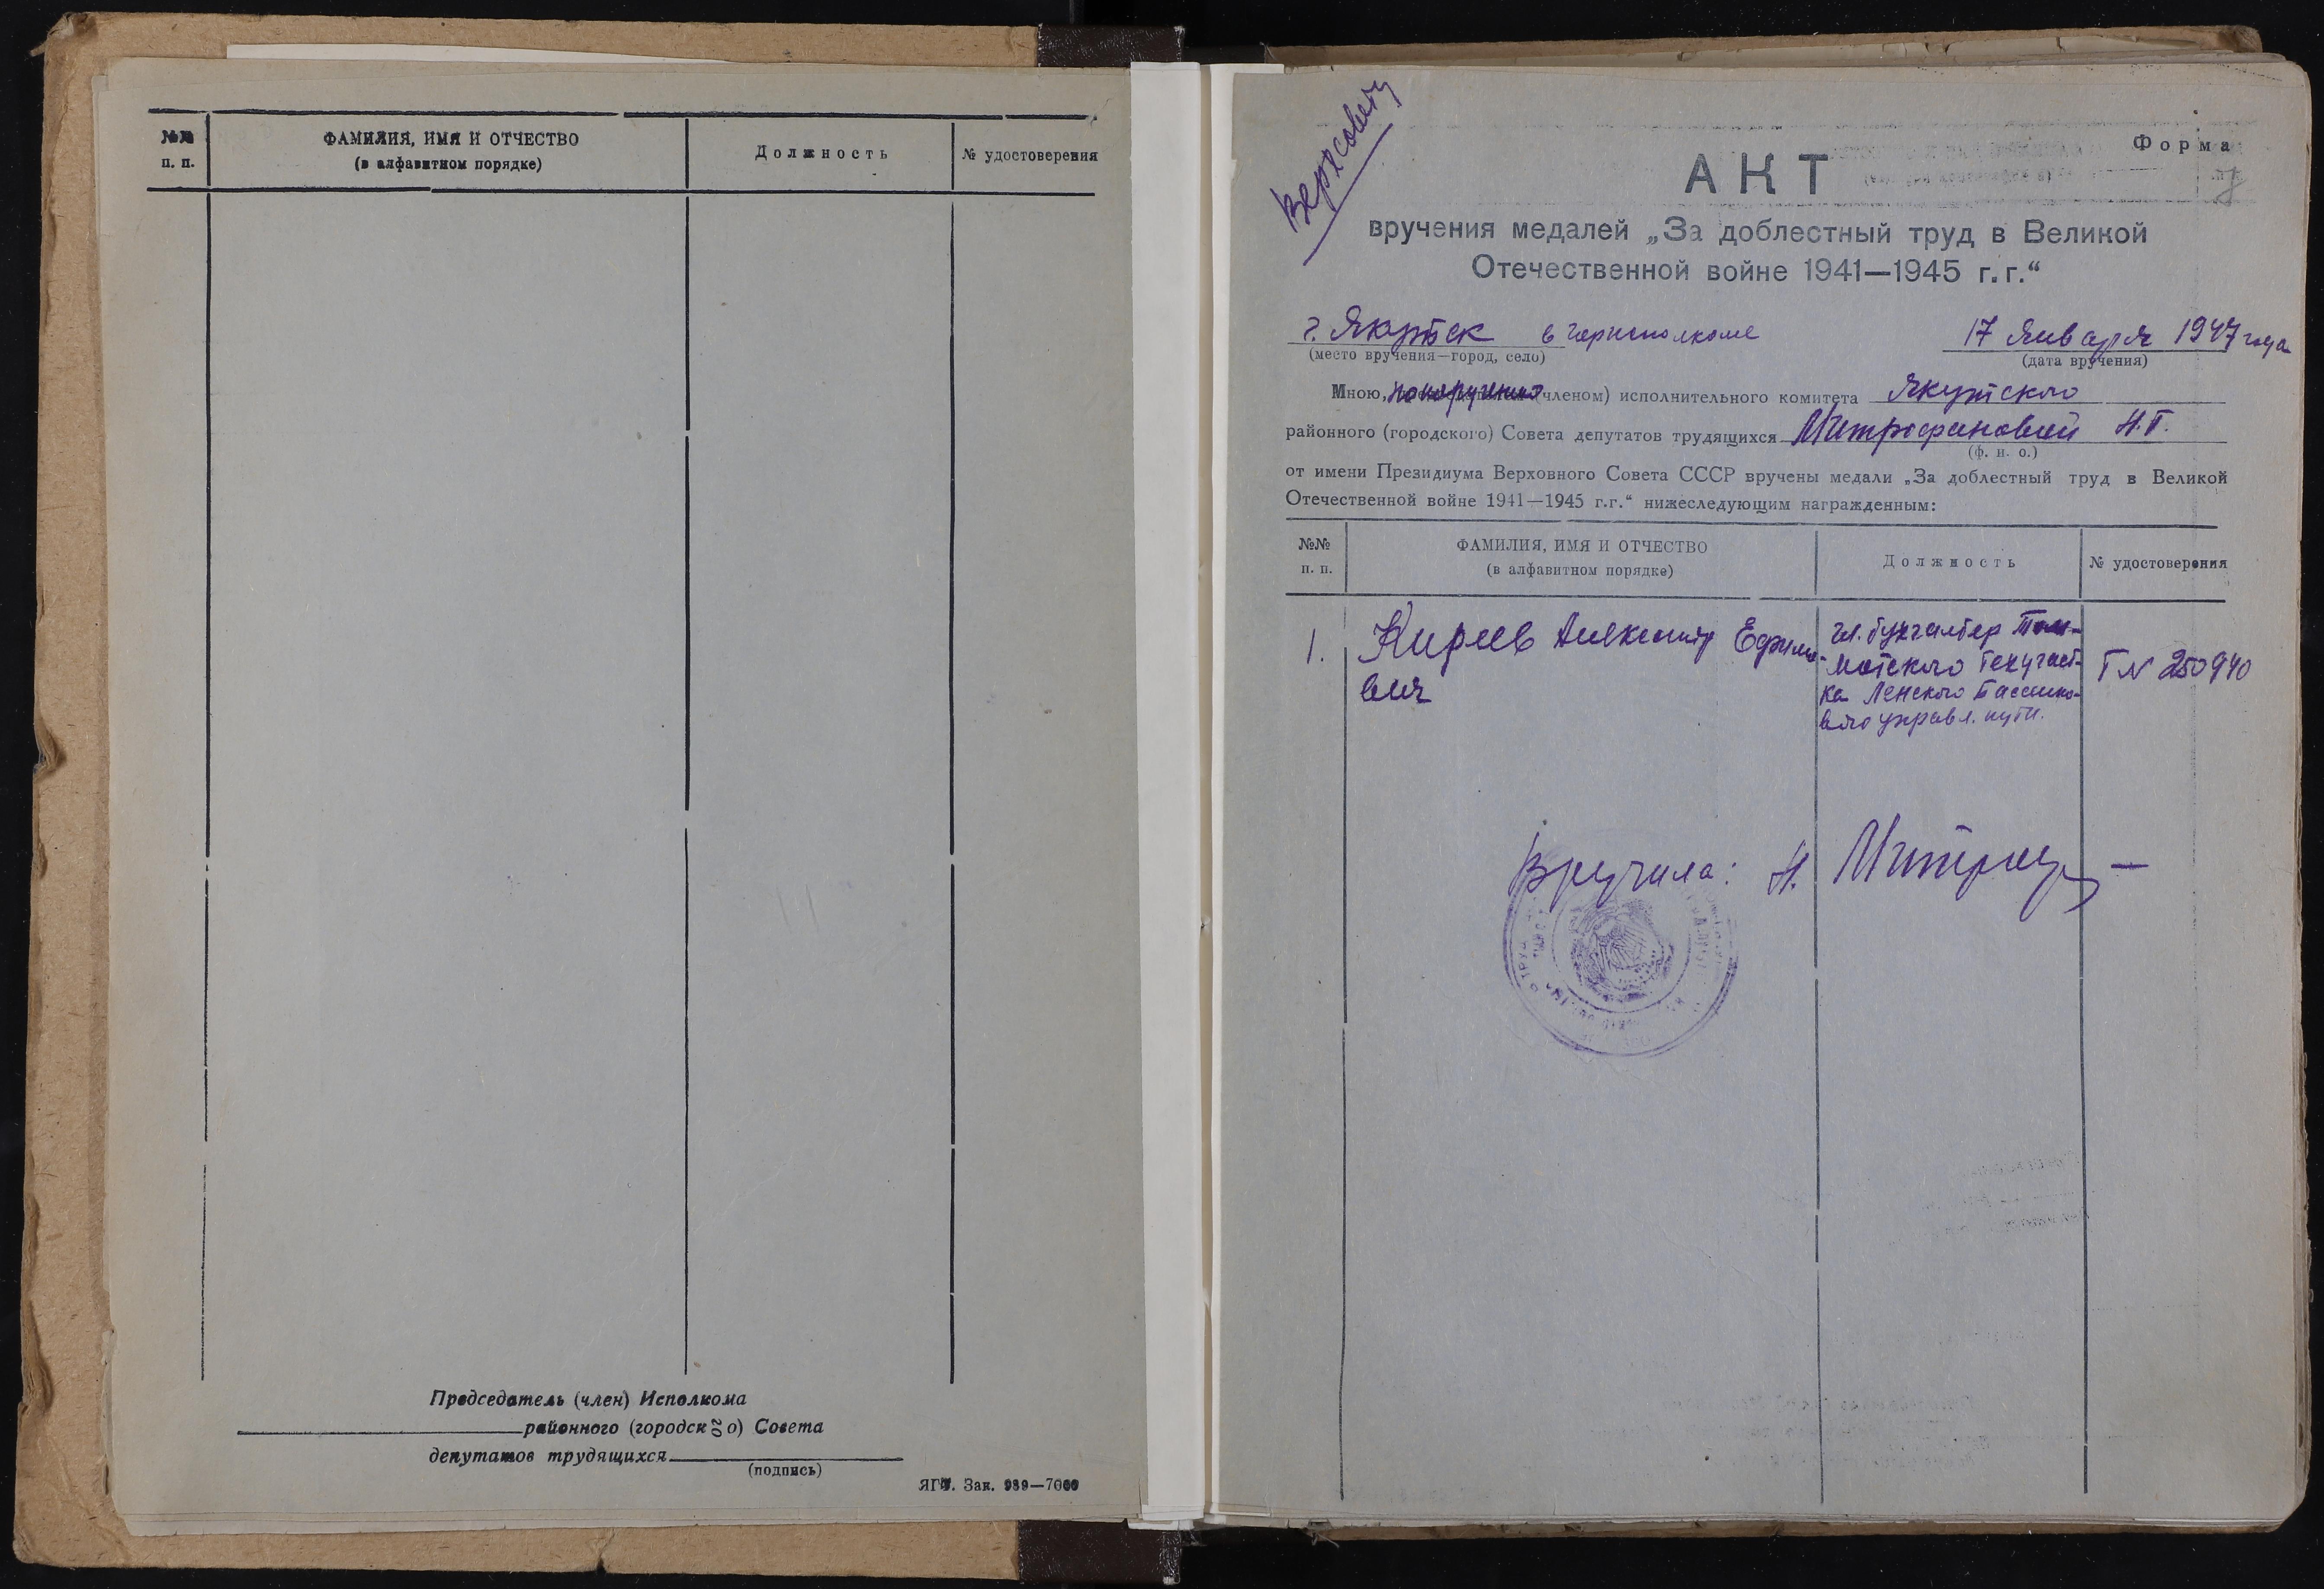 №№
п. п.
ФАМИЛИЯ, ИМЯ И ОТЧЕСТВО
(в алфавитном порядке)
Должность
№ удостоверения
Председатель (член) Исполкома
районного (городского) Совета
депутатов трудящихся
(подпись)
ЯГТ. Зак. 989—7000
Верхсовету
Форма
АКТ
вручения медалей „За доблестный труд в Великой
Отечественной войне 1941—1945 г.г.“
г. Якутск в горисполкоме
17 Января 1947 года
(место вручения—город, село)
(дата вручения)
Мною, (членом) исполнительного комитета Якутского
районного (городского) Совета депутатов трудящихся Митрофановой Н.П.
(ф. и. о.)
от имени Президиума Верховного Совета СССР вручены медали „За доблестный труд в Великой
Отечественной войне 1941—1945 г.г.“ нижеследующим награжденным:
№№
п. п.
ФАМИЛИЯ, ИМЯ И ОТЧЕСТВО
(в алфавитном порядке)
Должность
№ удостоверения
1.
Киреев Александр Ефимо-
вич
гл. бухгалтер Том-
мотского Техучаст-
ка Ленского Бассейно-
вого управл. пути.
Т № 250940
Вручила: Н.